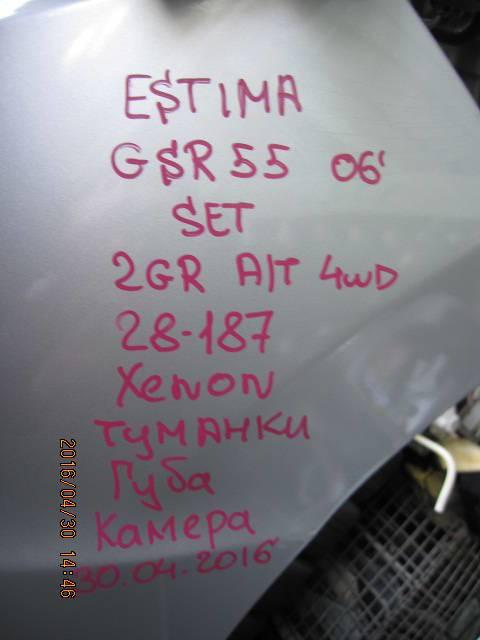 ESTIMA
GSR55 06'
SET
2GR A/T 4WD
28-187
Xenon
туманки
Губа
Камера
30.04.2016
2016/04/30 14:46